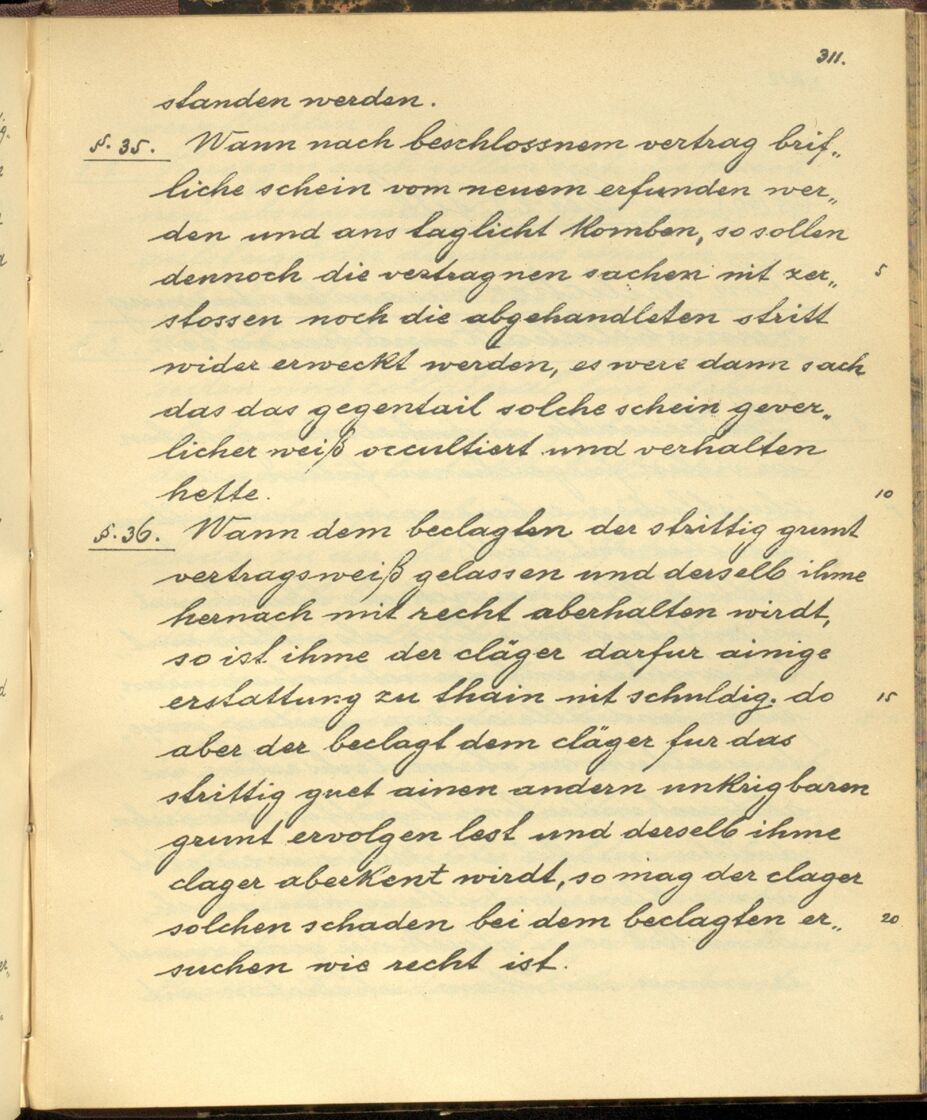 311.
standen werden.
§. 35. Wann nach beschlossnem vertrag brif„
liche schein vom neuem erfunden wer„
den und ans taglicht komben, so sollen
dennoch die vertragnen sachen nit zer„ 5
stossen noch die abgehandleten stritt
wider erweckt werden, es were dann sach
das das gegentail solche schein gever„
licher weiß occultiert und verhalten
hette. 10
§. 36. Wann dem beclagten der strittig grunt
vertragsweiß gelassen und derselb ihme
hernach mit recht aberhalten wirdt,
so ist ihme der cläger darfur ainige
erstattung zu thain nit schuldig. do 15
aber der beclagt dem cläger fur das
strittig guet ainen andern unkrigbaren
grunt ervolgen lest und derselb ihme
clager aberkent wirdt, so mag der clager
solchen schaden bei dem beclagten er„ 20
suchen wie recht ist.